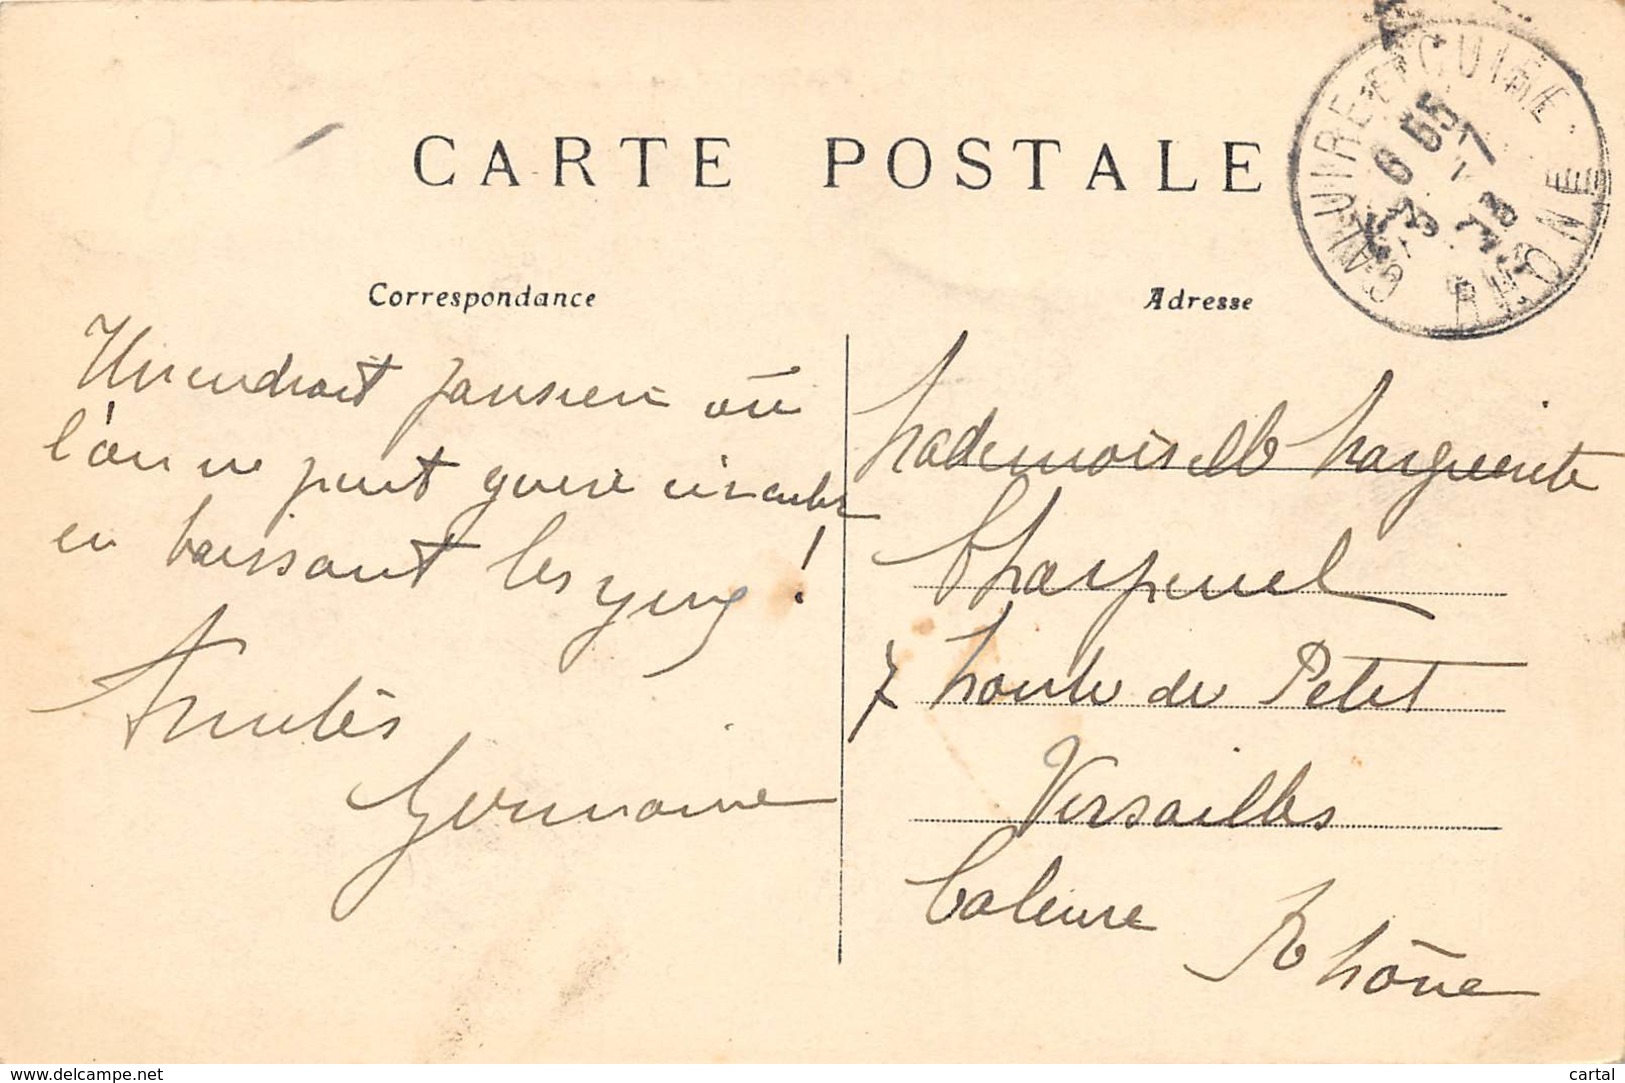 CARTE POSTALE
CALUIRE ET CUIRE
RHONE
6 55
Correspondance
Adresse
Un endroit parisien où
l'on ne peut guère circuler
en baissant les yeux !
Amitiés
Germaine
Mademoiselle Marguerite
Charpenel
7 Montée du Petit
Versailles
Caluire
Rhône
www.delcampe.net
cartal